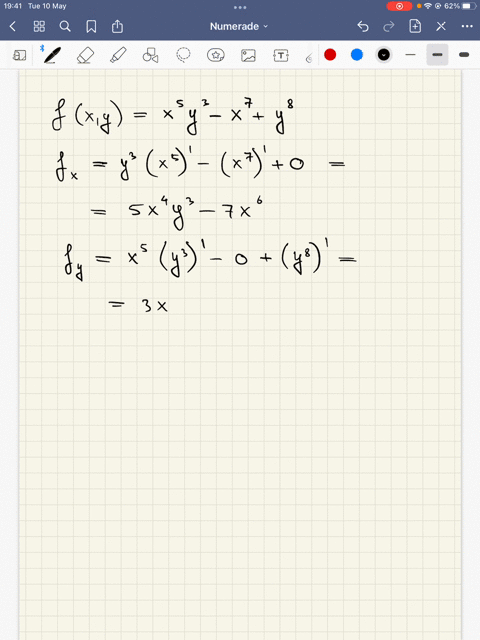 19:41 Tue 10 May 62%
Numerade
T
f(x,y) = x⁵y³ - x⁷ + y⁸
fₓ = y³(x⁵)' - (x⁷)' + 0 =
= 5x⁴y³ - 7x⁶
f_y = x⁵(y³)' - 0 + (y⁸)' =
= 3x